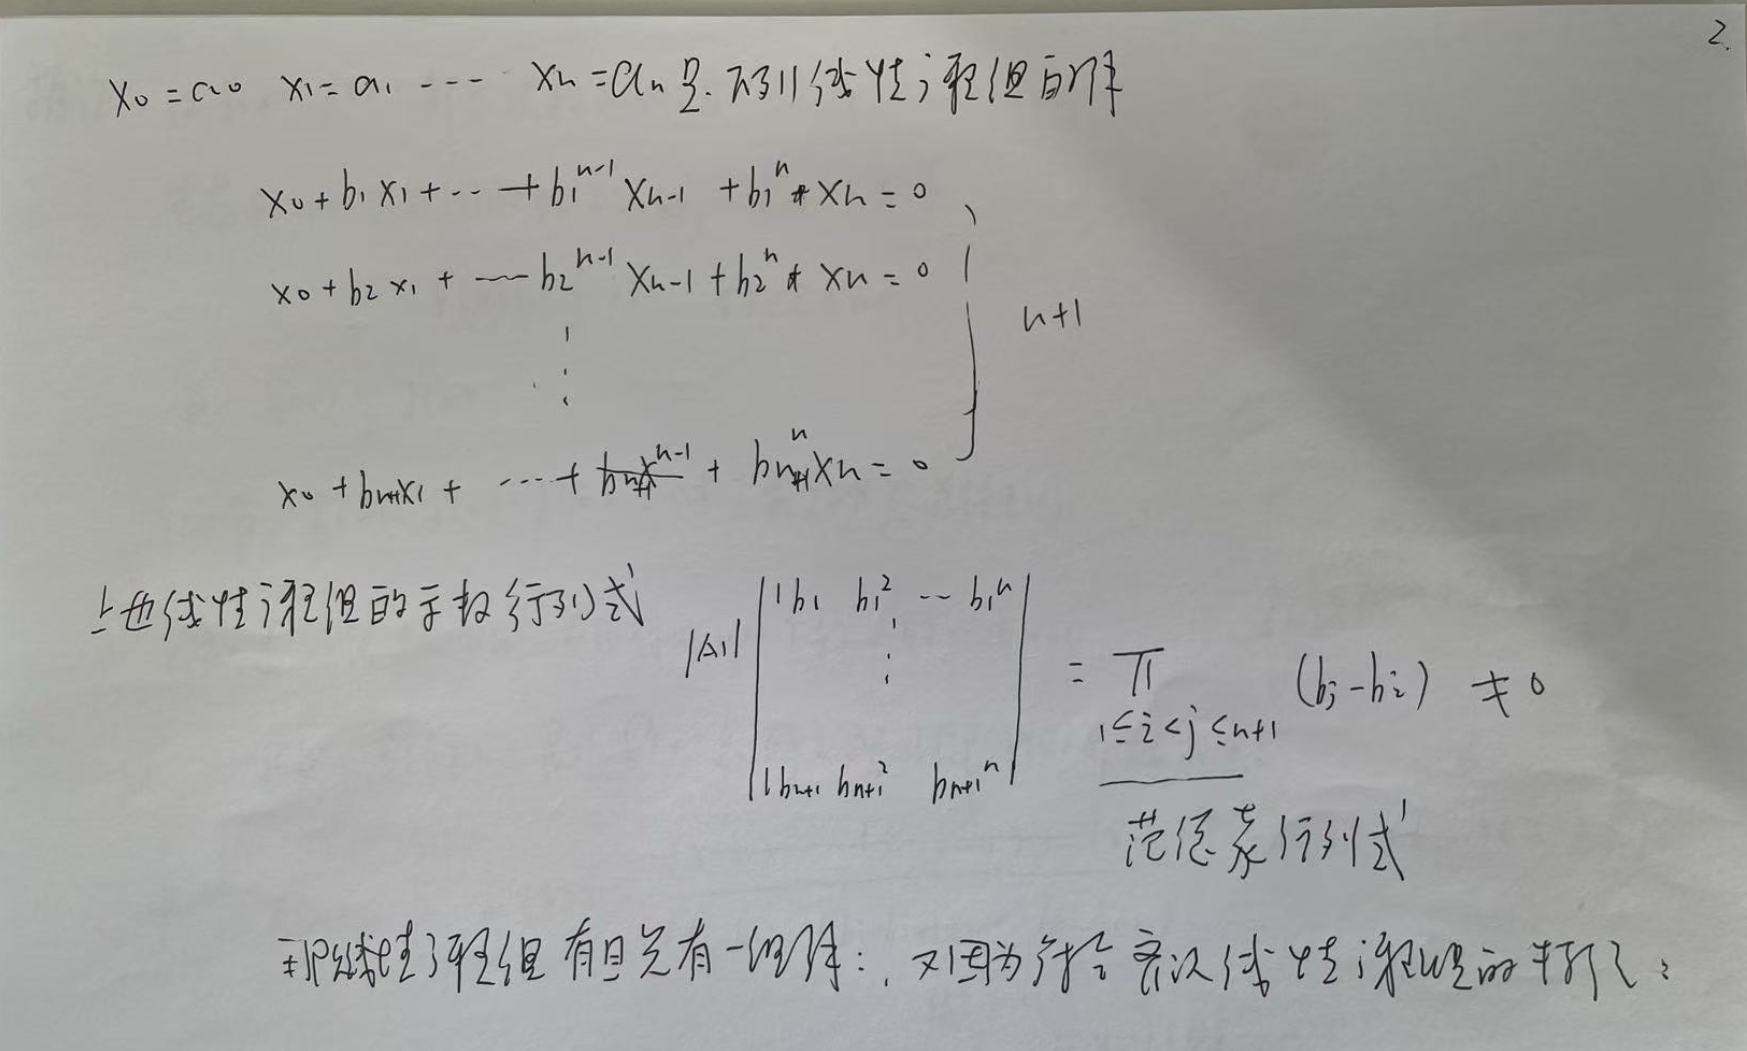 2.
x₀ = a₀ x₁ = a₁ ---- xₙ = aₙ 是. 下列线性方程组的解
x₀ + b₁x₁ + ··· + b₁ⁿ⁻¹ xₙ₋₁ + b₁ⁿ xₙ = 0
x₀ + b₂x₁ + — b₂ⁿ⁻¹ xₙ₋₁ + b₂ⁿ xₙ = 0
n+1
⋮
x₀ + bₙ₊₁x₁ + ···· + bₙ₊₁ⁿ xₙ = 0
上述线性方程组的系数行列式
|A₁| | 1 b₁ b₁² -- b₁ⁿ |
⋮
= π (bⱼ - bᵢ) ≠ 0
1≤i<j≤n+1
| 1 bₙ₊₁ bₙ₊₁² bₙ₊₁ⁿ |
范德蒙行列式
即线性方程组有且只有一组解: 又因为符合齐次线性方程组的